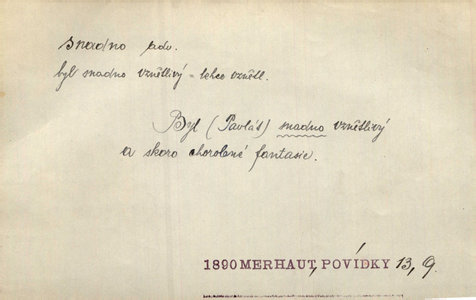 snadno adv.
byl snadno vznětlivý = lehce vznětl.
Byl (Pavlát) snadno vznětlivý
a skoro chorobné fantasie.
1890 MERHAUT, POVÍDKY 13, 9.